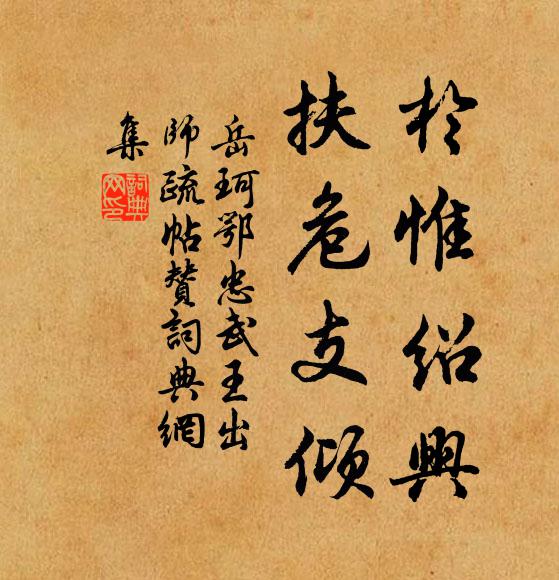 於惟绍興
扶危支傾
岳珂鄂忠武王出
師疏帖赞詞典網
集
詞典網印